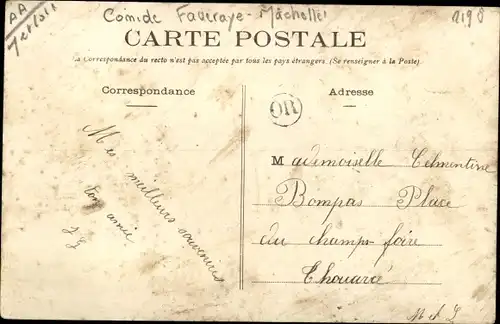 AA
Comide Faveraye-Machelles
2198
CARTE POSTALE
La Correspondance du recto n'est pas acceptée par tous les pays étrangers. (Se renseigner à la Poste).
Correspondance
Adresse
OR
Mes meilleurs souvenirs
Ton amie
Mademoiselle Clementine
Bompas Place
du champ foire
Thouarcé
M et L